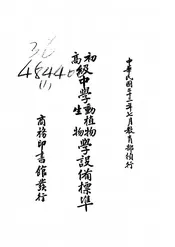 中華民國二十三年七月教育部頒行
初級中學動植物學設備標準
高級中學生物學設備標準
商務印書館發行
4844
(1)